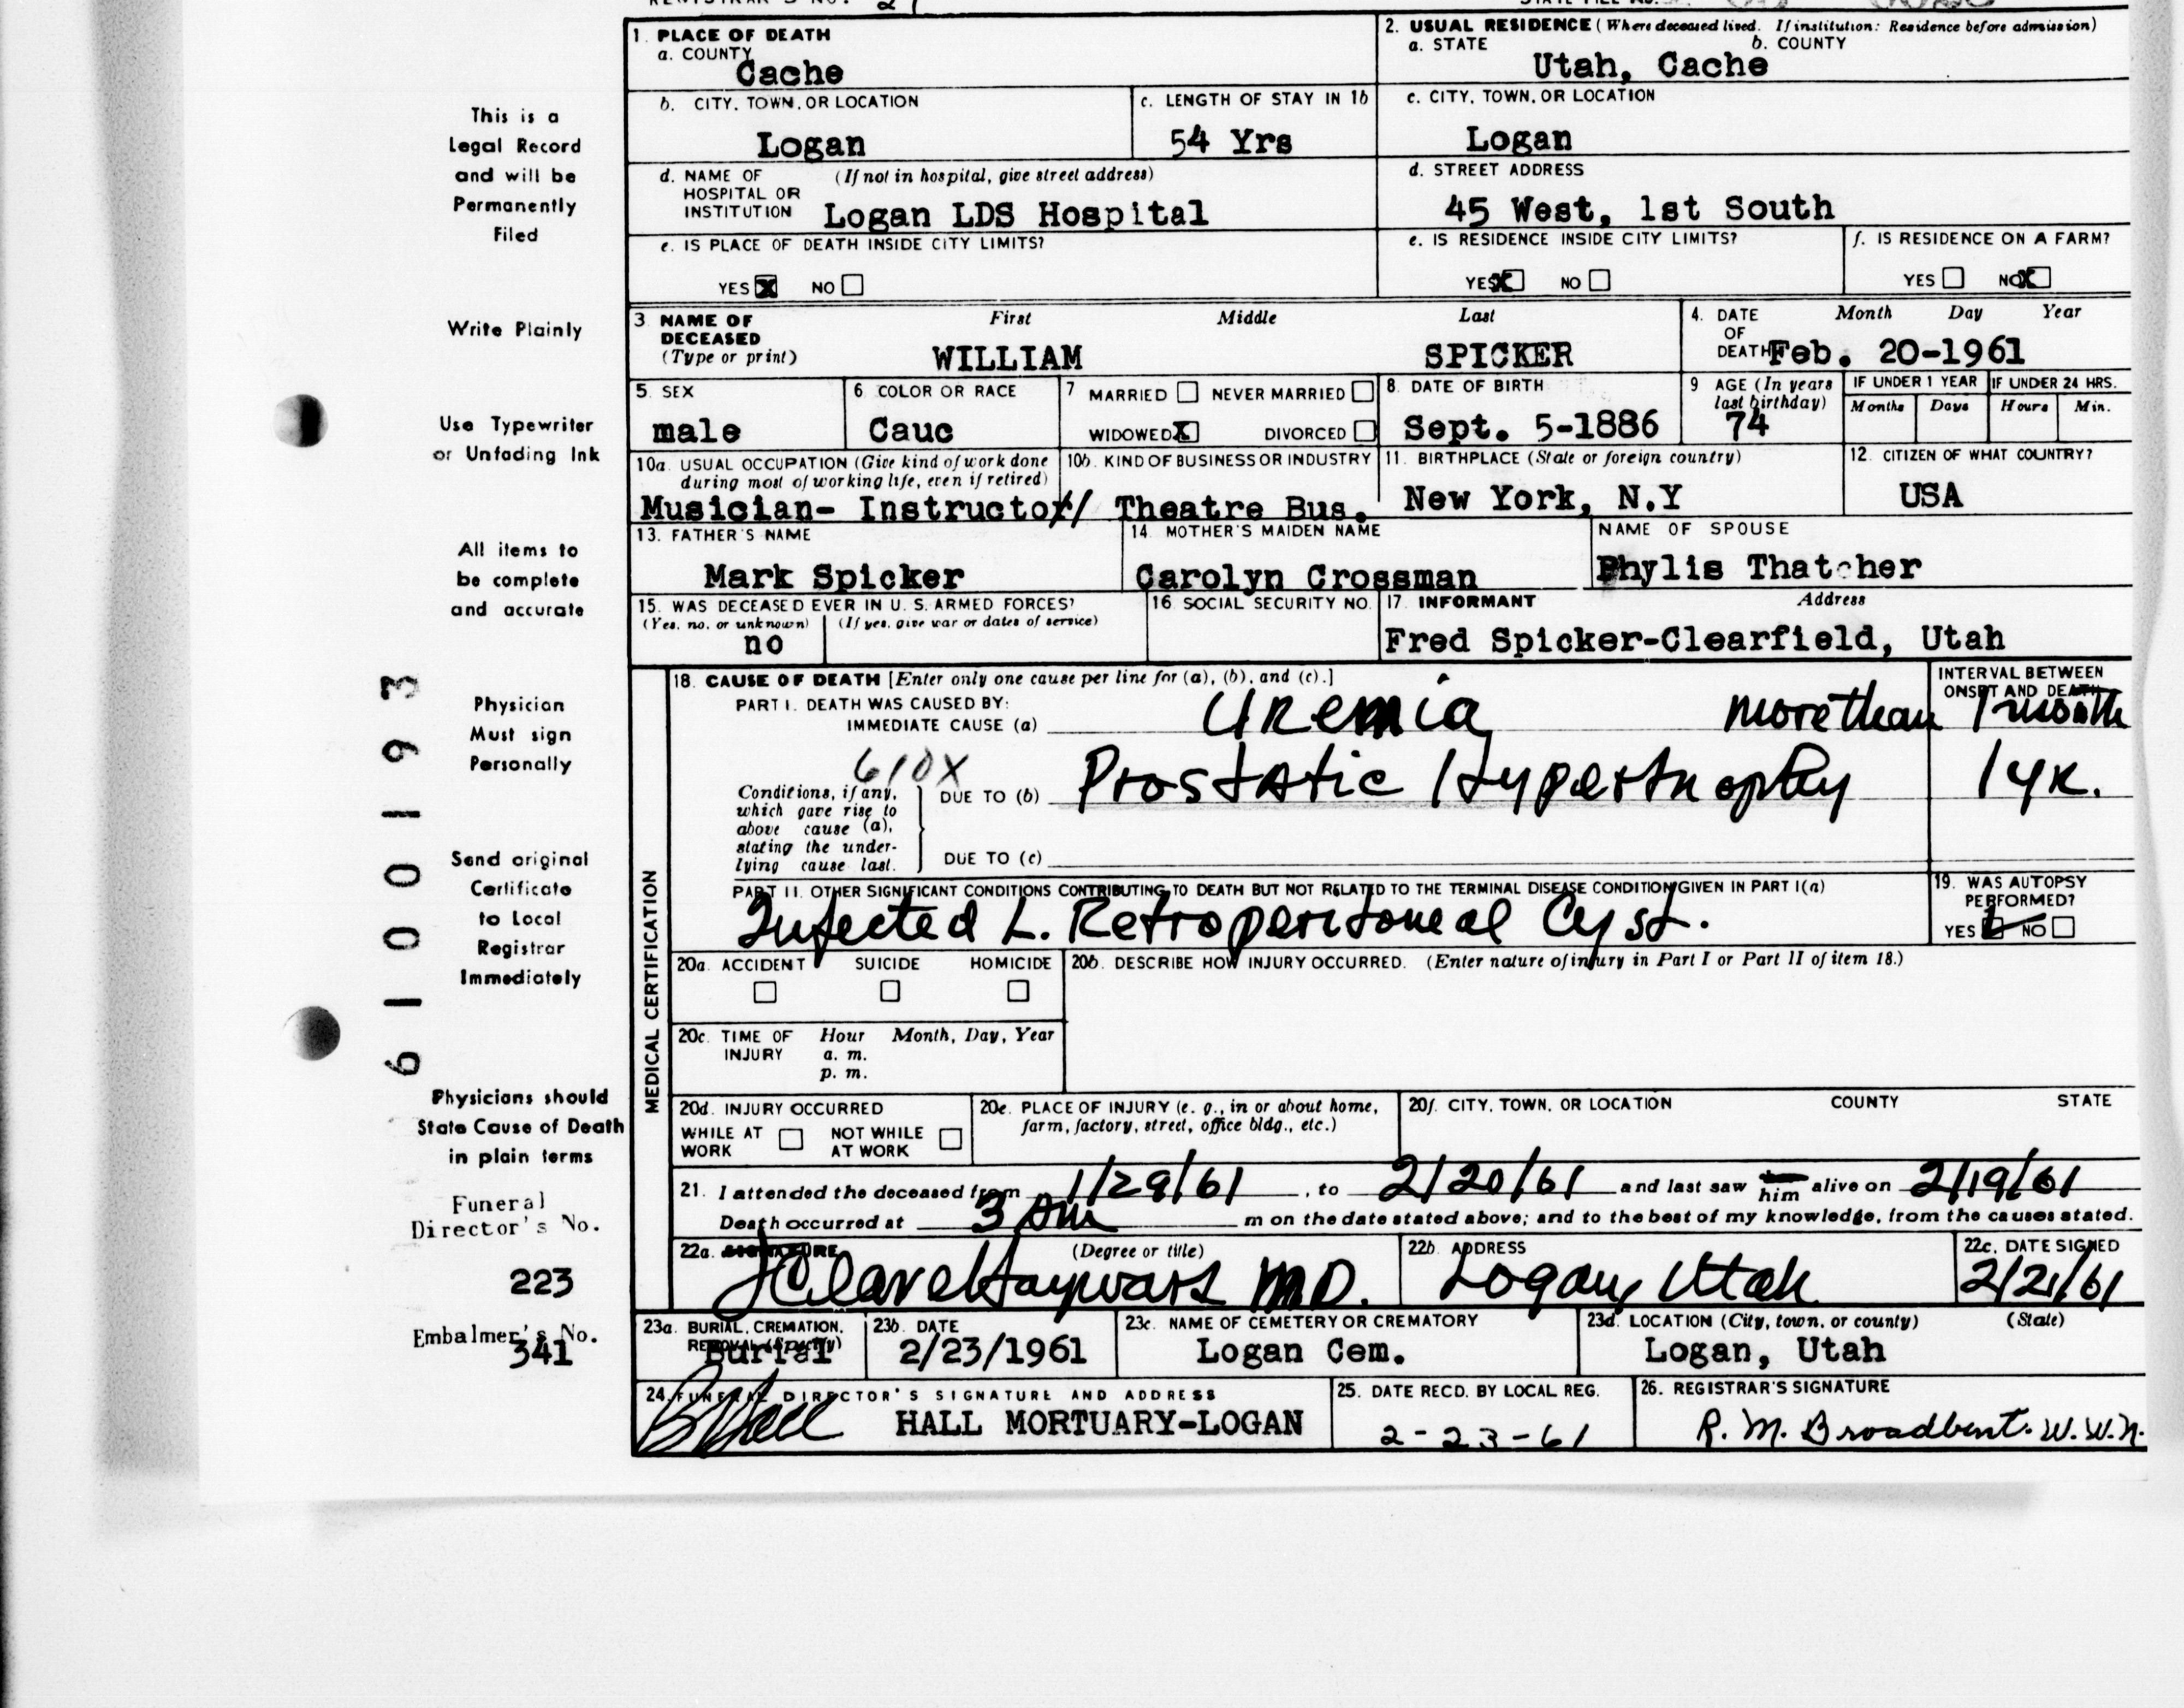 1. PLACE OF DEATH
a. COUNTY
Cache
2. USUAL RESIDENCE (Where deceased lived. If institution: Residence before admission)
a. STATE b. COUNTY
Utah, Cache
b. CITY, TOWN, OR LOCATION
Logan
c. LENGTH OF STAY IN 1b
54 Yrs
c. CITY, TOWN, OR LOCATION
Logan
d. NAME OF (If not in hospital, give street address)
HOSPITAL OR
INSTITUTION Logan LDS Hospital
d. STREET ADDRESS
45 West, 1st South
e. IS PLACE OF DEATH INSIDE CITY LIMITS?
YES X NO
e. IS RESIDENCE INSIDE CITY LIMITS?
YES X NO
f. IS RESIDENCE ON A FARM?
YES NO X
3 NAME OF First Middle Last
DECEASED
(Type or print) WILLIAM SPICKER
4. DATE Month Day Year
OF
DEATH Feb. 20-1961
5. SEX
male
6 COLOR OR RACE
Cauc
7 MARRIED NEVER MARRIED
WIDOWED X DIVORCED
8. DATE OF BIRTH
Sept. 5-1886
9 AGE (In years
last birthday)
74
IF UNDER 1 YEAR IF UNDER 24 HRS.
Months Days Hours Min.
10a. USUAL OCCUPATION (Give kind of work done
during most of working life, even if retired)
Musician- Instructor/
10b. KIND OF BUSINESS OR INDUSTRY
Theatre Bus.
11. BIRTHPLACE (State or foreign country)
New York, N.Y
12. CITIZEN OF WHAT COUNTRY?
USA
13. FATHER'S NAME
Mark Spicker
14. MOTHER'S MAIDEN NAME
Carolyn Crossman
NAME OF SPOUSE
Phylis Thatcher
15. WAS DECEASED EVER IN U. S. ARMED FORCES?
(Yes, no, or unknown) (If yes, give war or dates of service)
no
16 SOCIAL SECURITY NO.
17. INFORMANT Address
Fred Spicker-Clearfield, Utah
MEDICAL CERTIFICATION
18. CAUSE OF DEATH [Enter only one cause per line for (a), (b), and (c).]
INTERVAL BETWEEN
ONSET AND DEATH
PART I. DEATH WAS CAUSED BY:
IMMEDIATE CAUSE (a) Uremia more than 1 month
610X
Conditions, if any,
which gave rise to
above cause (a),
stating the under-
lying cause last.
DUE TO (b) Prostatic Hypertrophy 1 yr.
DUE TO (c)
PART II. OTHER SIGNIFICANT CONDITIONS CONTRIBUTING TO DEATH BUT NOT RELATED TO THE TERMINAL DISEASE CONDITION GIVEN IN PART I(a)
Infected L. Retroperitoneal Cyst.
19. WAS AUTOPSY
PERFORMED?
YES NO
20a. ACCIDENT SUICIDE HOMICIDE
20b. DESCRIBE HOW INJURY OCCURRED. (Enter nature of injury in Part I or Part II of item 18.)
20c. TIME OF Hour Month, Day, Year
INJURY a. m.
p. m.
20d. INJURY OCCURRED
WHILE AT NOT WHILE
WORK AT WORK
20e. PLACE OF INJURY (e. g., in or about home,
farm, factory, street, office bldg., etc.)
20f. CITY, TOWN, OR LOCATION COUNTY STATE
21. I attended the deceased from 1/29/61, to 2/20/61 and last saw him alive on 2/19/61
Death occurred at 3 AM m on the date stated above; and to the best of my knowledge, from the causes stated.
22a. SIGNATURE (Degree or title)
J Clare Hayward MD.
22b. ADDRESS
Logan, Utah
22c. DATE SIGNED
2/21/61
23a. BURIAL, CREMATION,
REMOVAL (Specify)
Burial
23b. DATE
2/23/1961
23c. NAME OF CEMETERY OR CREMATORY
Logan Cem.
23d. LOCATION (City, town, or county) (State)
Logan, Utah
24. FUNERAL DIRECTOR'S SIGNATURE AND ADDRESS
HALL MORTUARY-LOGAN
25. DATE RECD. BY LOCAL REG.
2-23-61
26. REGISTRAR'S SIGNATURE
R. M. Broadbent. W.W.N.
This is a
Legal Record
and will be
Permanently
Filed
Write Plainly
Use Typewriter
or Unfading Ink
All items to
be complete
and accurate
Physician
Must sign
Personally
Send original
Certificate
to Local
Registrar
Immediately
Physicians should
State Cause of Death
in plain terms
Funeral
Director's No.
223
Embalmer's No.
341
6 1 0 0 1 9 3